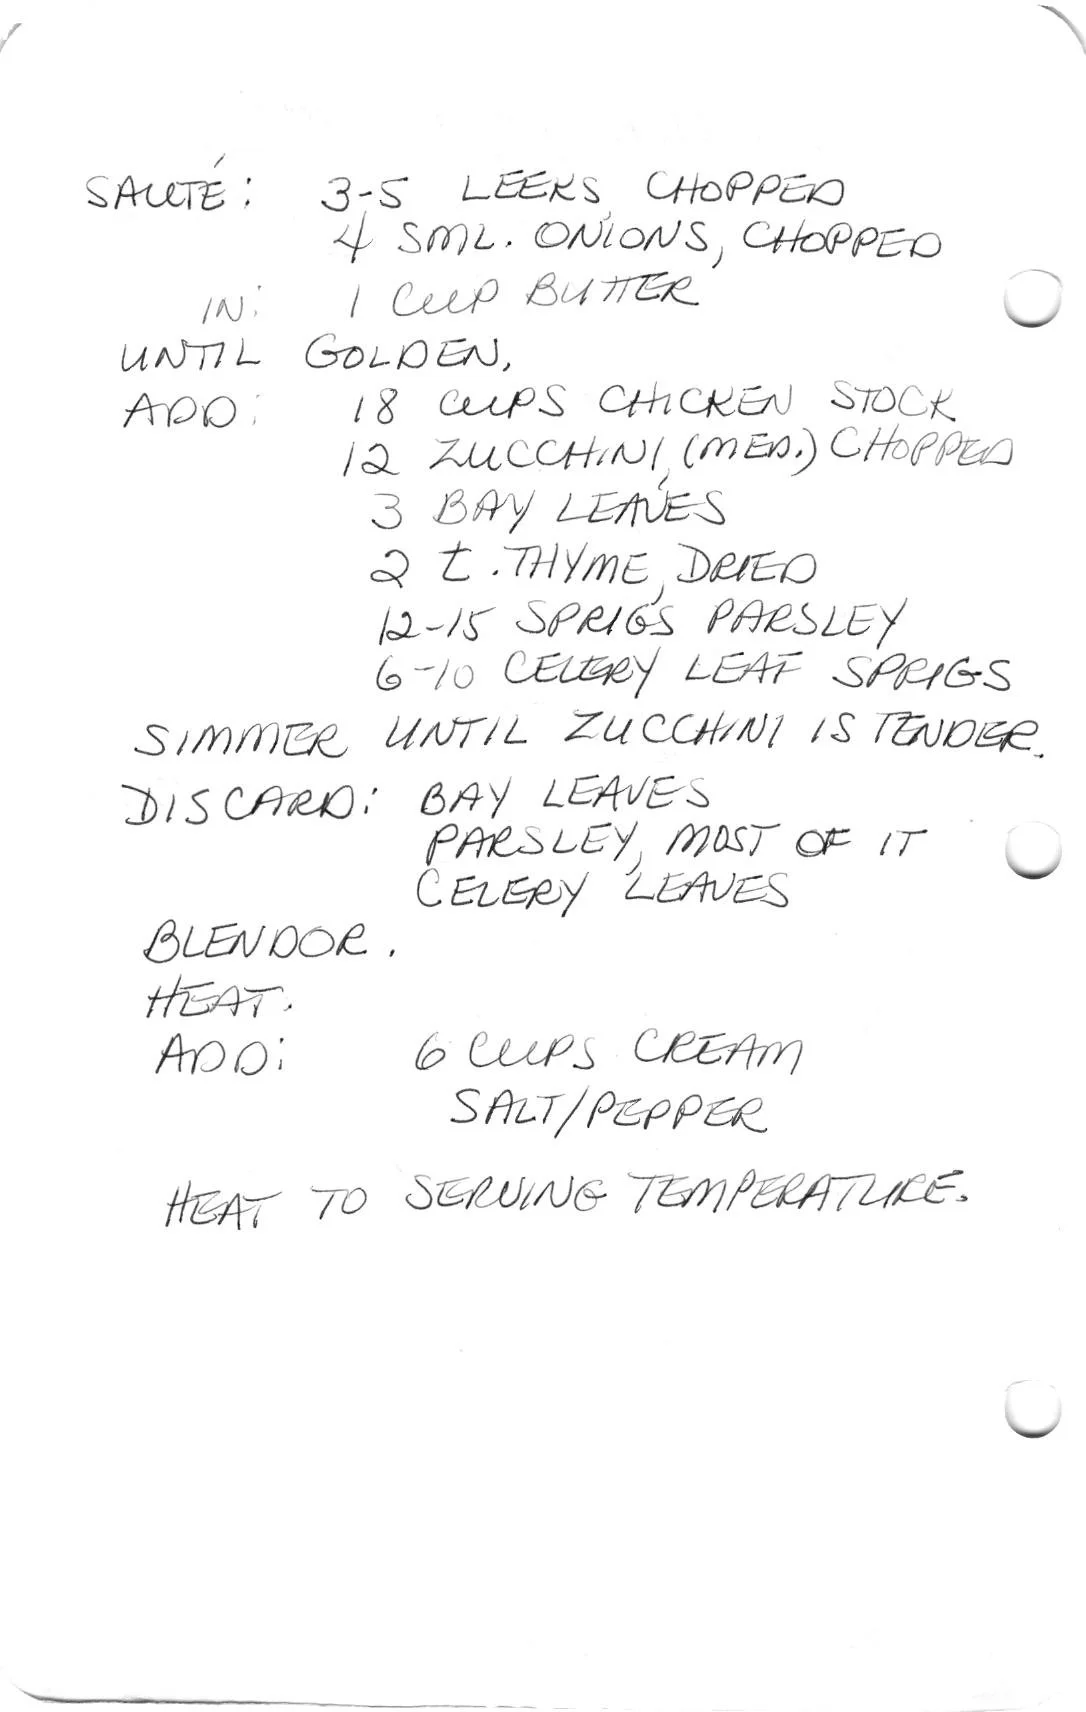 SAUTÉ: 3-5 LEEKS, CHOPPED
4 SML. ONIONS, CHOPPED
IN: 1 CUP BUTTER
UNTIL GOLDEN.
ADD: 18 CUPS CHICKEN STOCK
12 ZUCCHINI, (MED.) CHOPPED
3 BAY LEAVES
2 t. THYME, DRIED
12-15 SPRIGS PARSLEY
6-10 CELERY LEAF SPRIGS
SIMMER UNTIL ZUCCHINI IS TENDER.
DISCARD: BAY LEAVES
PARSLEY, MOST OF IT
CELERY LEAVES
BLENDOR.
HEAT.
ADD: 6 CUPS CREAM
SALT/PEPPER
HEAT TO SERVING TEMPERATURE.